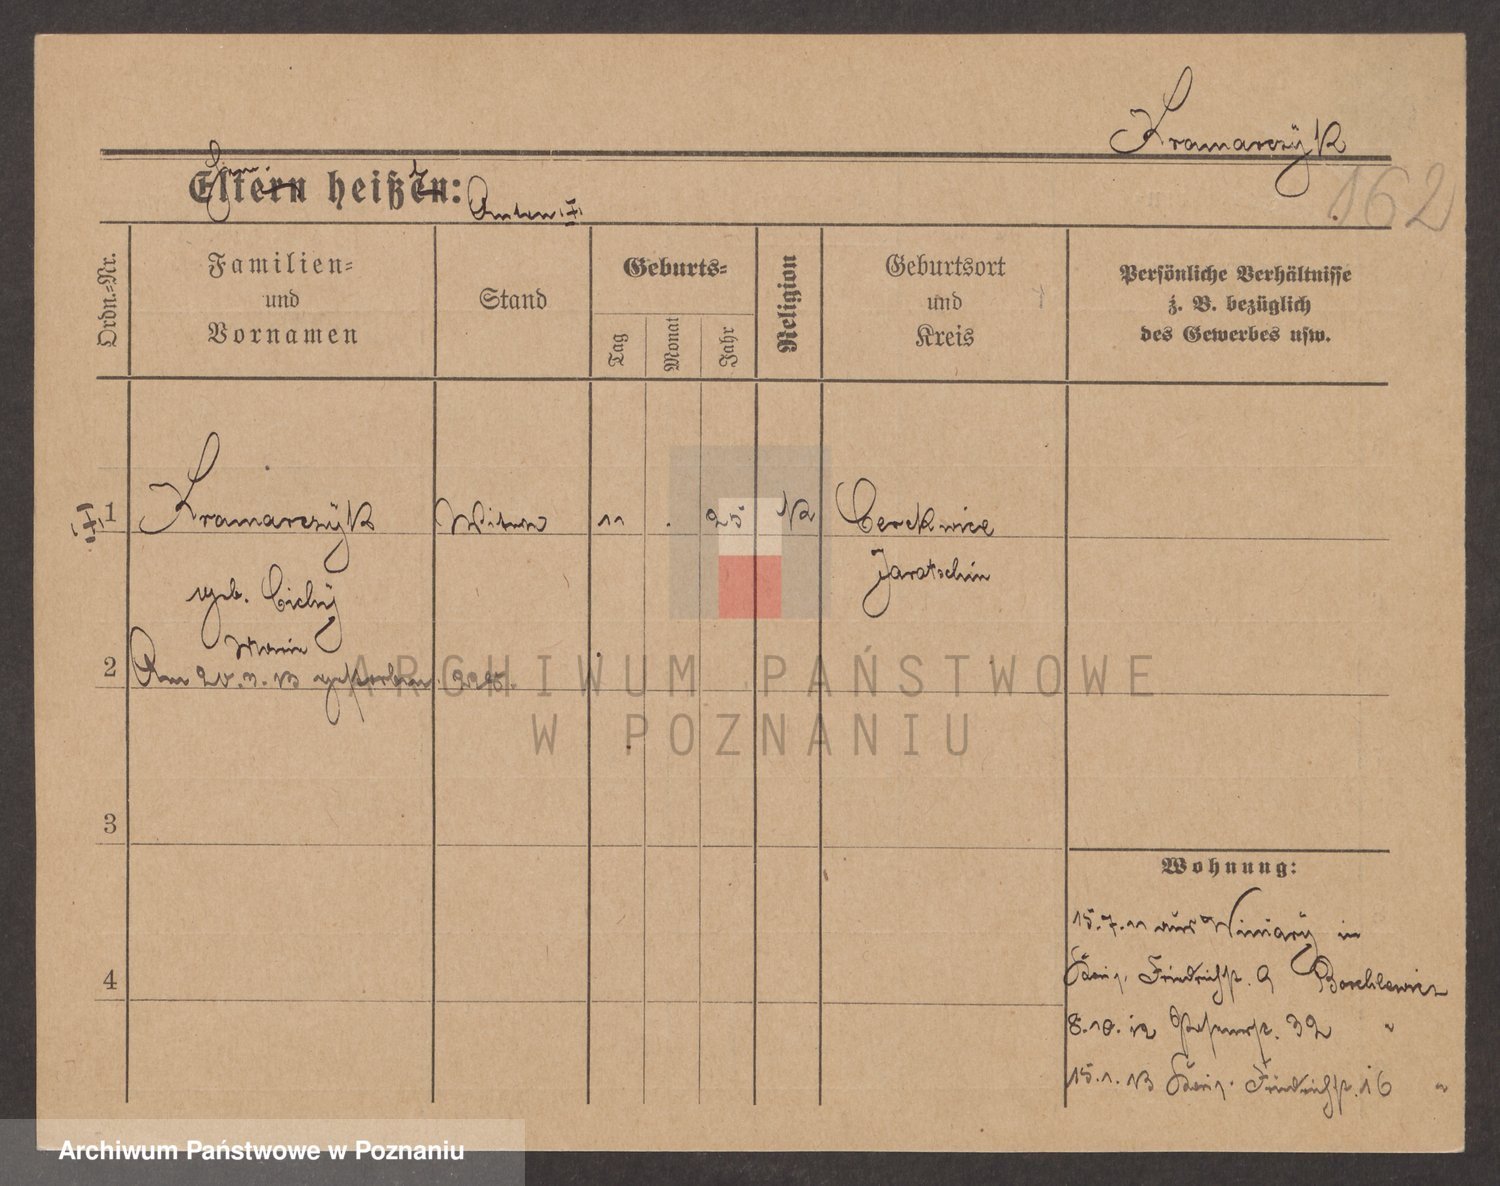 Kramarczÿk
162
Eltern heißen: Anton
Ordn.-Nr.
Familien-
und
Vornamen
Stand
Geburts-
Tag
Monat
Jahr
Religion
Geburtsort
und
Kreis
Persönliche Verhältnisse
z. B. bezüglich
des Gewerbes usw.
1 Kramarczÿk Witwe 11 . 25 K Cerekwice
geb. Cichÿ Jarotschin
Marie
2 Am 20.3.13 gestorben.
3
4
Wohnung:
15.7.11 aus Winiarÿ in
Friedrichst. 9
8.10.12 32 "
15.1.13 Friedrichst. 16 "
ARCHIWUM PAŃSTWOWE
W POZNANIU
Archiwum Państwowe w Poznaniu